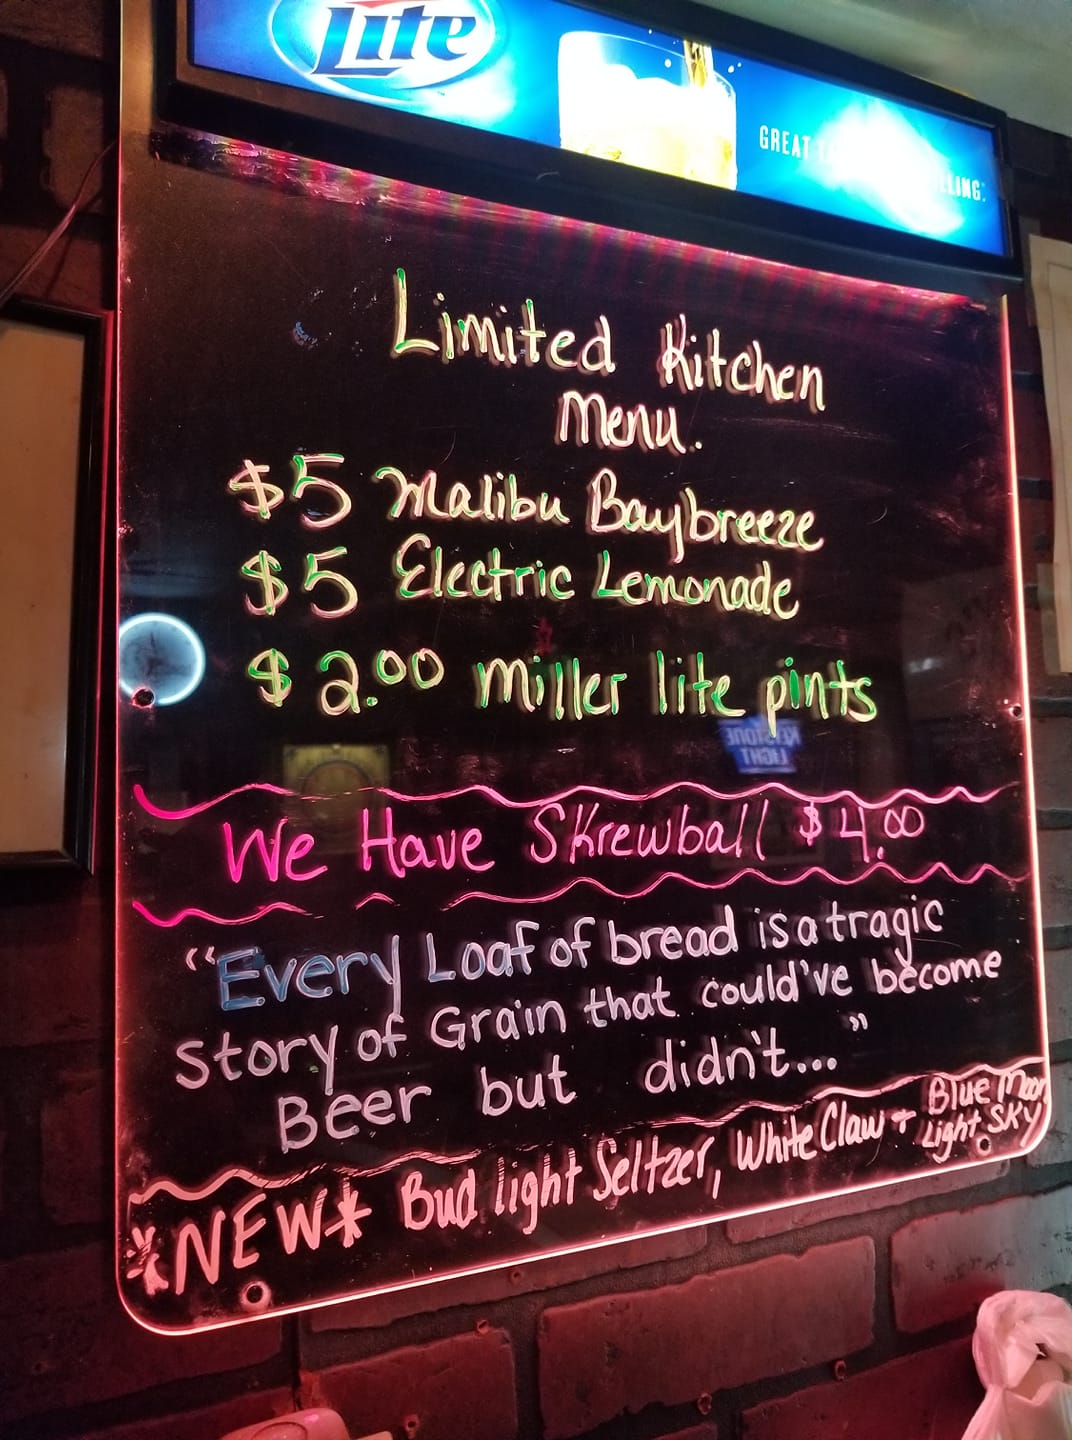 Lite
GREAT
Limited Kitchen
Menu.
$5 Malibu Baybreeze
$5 Electric Lemonade
$2.00 miller lite pints
KEYSTONE
LIGHT
We Have Skrewball $4.00
"Every Loaf of bread is a tragic
story of Grain that could've become
Beer but didn't..."
*NEW* Bud light Seltzer, White Claw + Blue Moon
Light Sky